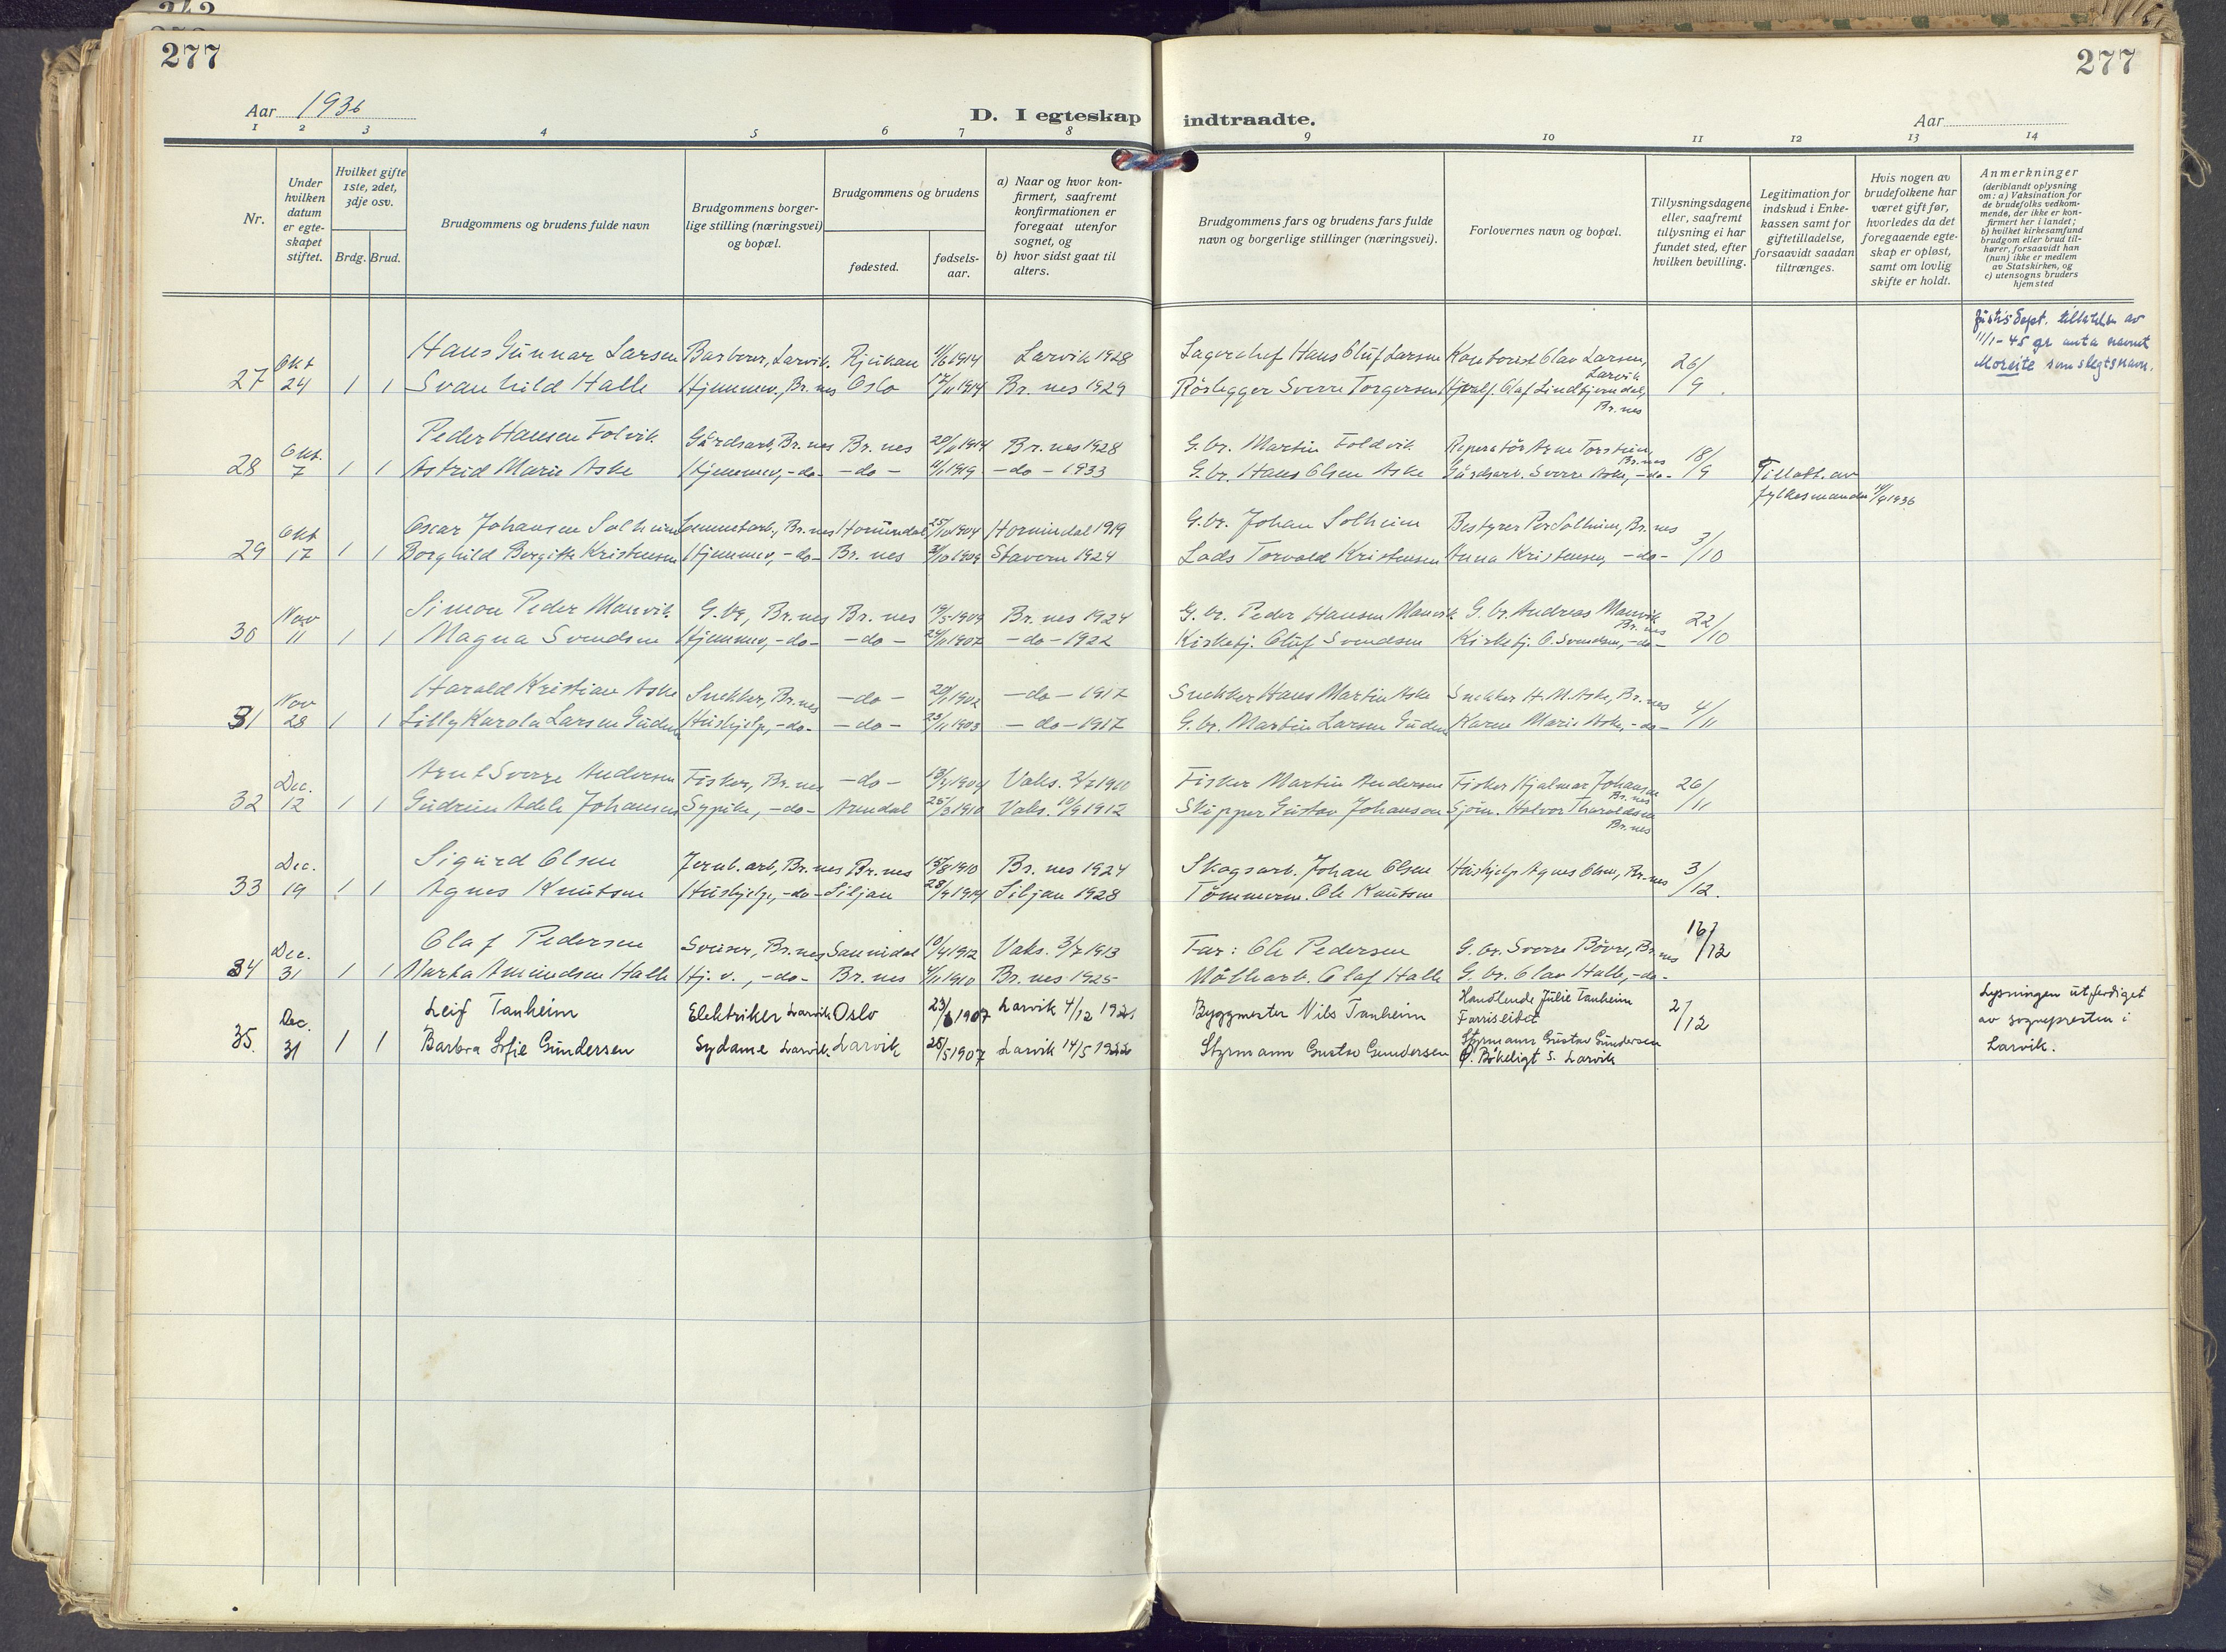 277
277
Aar 1936
D. I egteskap indtraadte.
Aar
1 2 3 4 5 6 7 8 9 10 11 12 13 14
Nr.
Under hvilken datum er egteskapet stiftet.
Hvilket gifte 1ste, 2det, 3dje osv.
Brdg. Brud.
Brudgommens og brudens fulde navn
Brudgommens borgerlige stilling (næringsvei) og bopæl.
Brudgommens og brudens
fødested.
fødselsaar.
a) Naar og hvor konfirmert, saafremt konfirmationen er foregaat utenfor sognet, og
b) hvor sidst gaat til alters.
Brudgommens fars og brudens fars fulde navn og borgerlige stillinger (næringsvei).
Forlovernes navn og bopæl.
Tillysningsdagene eller, saafremt tillysning ei har fundet sted, efter hvilken bevilling.
Legitimation for indskud i Enkekassen samt for giftetilladelse, forsaavidt saadan tiltrænges.
Hvis nogen av brudefolkene har været gift før, hvorledes da det foregaaende egteskap er opløst, samt om lovlig skifte er holdt.
Anmerkninger
(deriblandt oplysning om: a) Vaksination for de brudefolks vedkommende, der ikke er konfirmert her i landet; b) hvilket kirkesamfund brudgom eller brud tilhører, forsaavidt han (hun) ikke er medlem av Statskirken, og c) utensogns bruders hjemsted
27 Okt 24 1 1
Hans Gunnar Larsen Barberer, Larvik. Rjukan 1914 Larvik 1928 Lagerchef Hans Oluf Larsen Kontorist Olav Larsen, Larvik 26/9
Svanhild Halle Hjemmev., Br.nes Oslo 1914 Br. nes 1929 Rørlegger Sverre Torgersen Olaf Lindhjemdal, Br. nes
Justisdept. tillatelse av 11/1-45 gr anta navnet Moreite som slegtsnavn.
28 Okt. 7 1 1
Peder Hansen Folvik Gårdsarb, Br. nes Br. nes 1914 Br. nes 1928 G.br. Martin Foldvik Reperatør Arne Torstein, Br. nes 18/9
Astrid Marie Aske Hjemmev, -do- -do- 1919 -do- 1933 G.br. Hans Olsen Aske Gårdsarb. Sverre Aske, -do- Tillatt. av fylkesmanden 1936
29 Okt 17 1 1
Oscar Johansen Solheim Cementarb., Br. nes Hornindal 1904 Hornindal 1919 G.br. Johan Solheim Bestyrer Per Solheim, Br. nes 3/10
Borghild Bergitte Kristensen Hjemmev, -do- Br. nes 1909 Stavern 1924 Lods Torvald Kristensen Anna Kristensen, -do-
30 Nov 11 1 1
Simon Peder Manvik G.br, Br. nes Br. nes 1909 Br. nes 1924 G.br. Peder Hansen Manvik G.br. Andreas Manvik Br. nes 22/10
Magna Svendsen Hjemmev, -do- -do- 1907 -do- 1922 Kirketj. Oluf Svendsen Kirketj. O. Svendsen, -do-
31 Nov 28 1 1
Harald Kristian Aske Snekker, Br. nes -do- 1902 -do- 1917 Snekker Hans Martin Aske Snekker H. M. Aske, Br. nes 4/11
Lilly Karola Larsen Gudem Hushjelp, -do- -do- 1903 -do- 1917 G.br. Martin Larsen Gudem Karen Marie Aske, -do-
32 Dec. 12 1 1
Arnt Sverre Andersen Fisker, Br. nes -do- 1904 Vaks. 1910 Fisker Martin Andersen Fisker Hjalmar Johansen Br. nes 26/11
Gudrun Adele Johansen Sypike, -do- Arendal 25/3 1910 Vaks. 10/9 1912 Skipper Gustav Johansen Sjøm. Halvor Tharaldsen Br. nes
33 Dec. 19 1 1
Sigurd Olsen Jernb. arb, Br. nes Br. nes 1910 Br. nes 1924 Skogsarb. Johan Olsen Hushjelp Agnes Olsen, Br. nes 3/12.
Agnes Knutsen Hushjelp, -do- Siljan 1914 Siljan 1928 Tømmerm. Ole Knutsen
34 Dec. 31 1 1
Olaf Pedersen Sveiser, Br. nes Sannidal 1912 Vaks. 3/7 1913 Far: Ole Pedersen G.br. Sverre Bövre, Br. nes 16/12
Marta Amundsen Halle Hj. v., -do- Br. nes 1910 Br. nes 1925 Olaf Halle G.br. Olav Halle, -do-
35. Dec. 31 1 1
Leif Tanheim Elektriker Larvik Oslo 1907 Larvik 4/12 Byggmester Nils Tanheim Handlende Julie Tanheim Farriseidet 2/12
Barbra Sofie Gundersen Sydame Larvik. Larvik 25/5 1907 Larvik 14/5 1922 Styrmann Gustav Gundersen Styrmann Gustav Gundersen Ø. Bökeligt 5. Larvik
Lysningen utferdiget av sognepresten i Larvik.